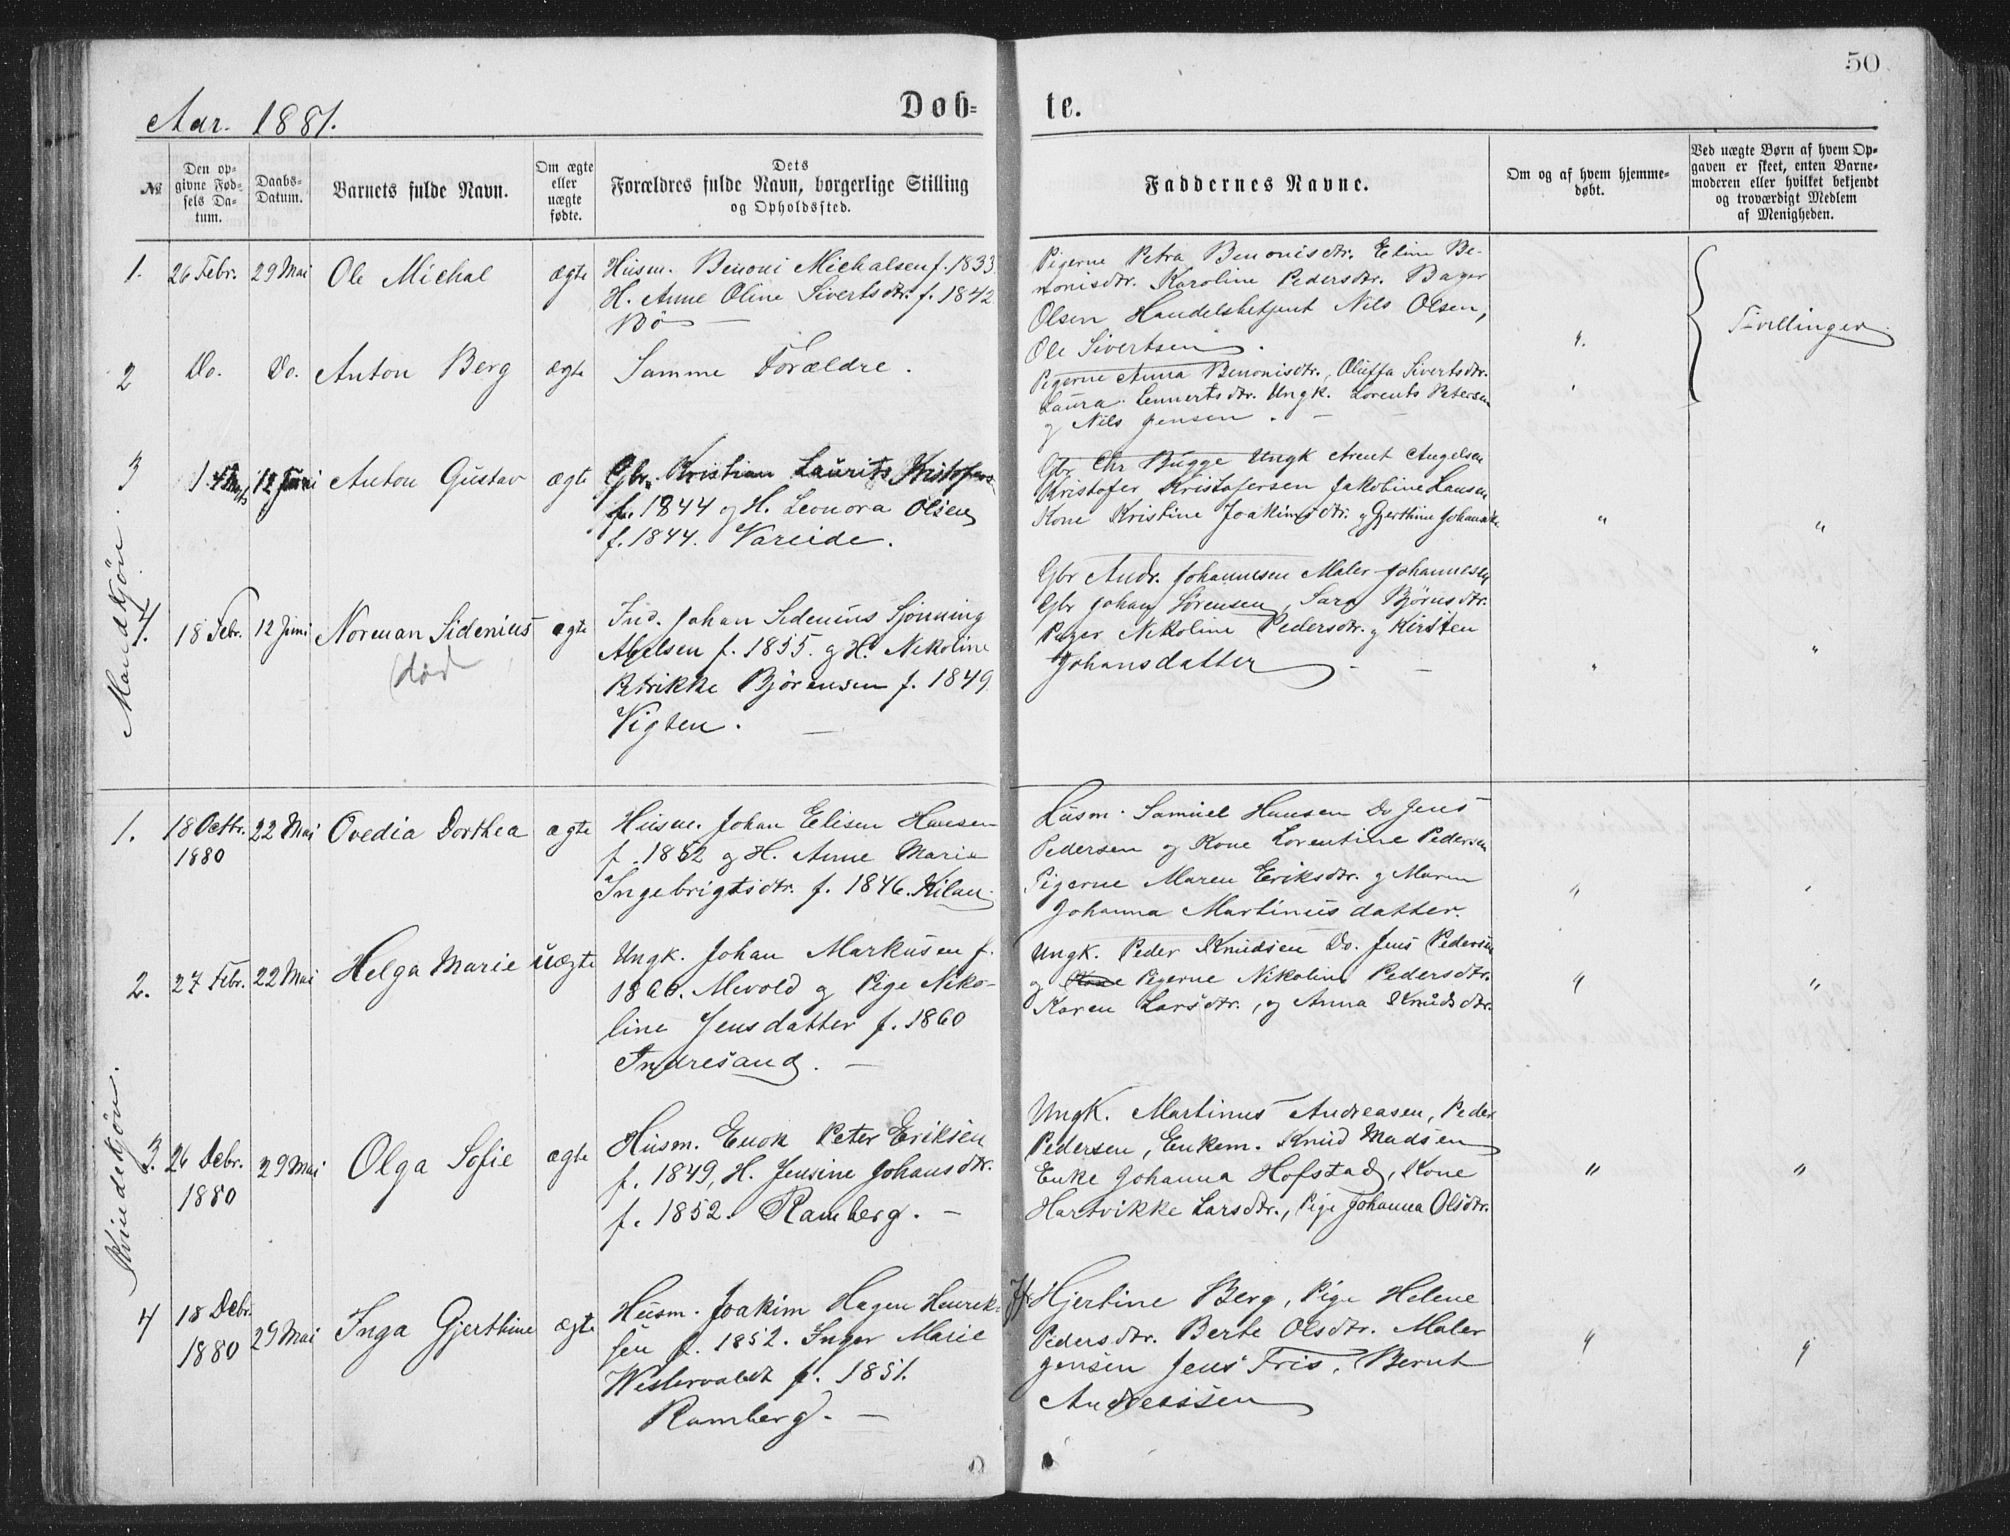 50
Aar. 1881.
Døb-
te.
№
Den opgivne Fødsels Datum.
Daabs-Datum.
Barnets fulde Navn.
Om ægte eller uægte fødte.
Dets Forældres fulde Navn, borgerlige Stilling og Opholdssted.
Faddernes Navne.
Om og af hvem hjemmedøbt.
Ved uægte Børn af hvem Opgaven er skeet, enten Barnemoderen eller hvilket bekjendt og troværdigt Medlem af Menigheden.
Mandkjøn.
1. 26 Febr. 29 Mai Ole Michal ægte
Husm. Benoni Michalsen f. 1833
H. Anne Oline Sivertsdtr. f. 1842
Bø
Pigerne Petra Benonisdtr. Eline Be-
nonisdtr. Karoline Pedersdtr. Bager
Olsen Handelsbetjent Nils Olsen,
Ole Sivertsen.
"
Tvillinger
2 Do. Do. Anton Berg ægte
Samme Forældre.
Pigerne Anna Benonisdtr., Oluffa Sivertsdtr.
Laura Lennertsdtr. Ungk. Lorents Petersen
og Nils Jensen.
3 12 Juni Anton Gustav ægte
Gbr. Kristian Laurits Kristofers
f. 1844 og H. Leonora Olsen
f. 1844. Vareide.
Gbr Chr Bugge Ungk Arent Angelsen
Kristofer Kristofersen Jakobine Hansen
Kone Kristine Joakimsdtr. og Gjerthine
" "
4. 18 Febr. 12 Juni Norman Sidenius ægte
død
Ind. Johan Sidenius Sjønning
Abelsen f. 1855. og H. Nekoline
Petrikke Bjørensen f. 1849
Vigten.
Gbr Andr. Johannesen Maler Johannesen
Gbr Johan Sørensen, Sara Bjørnsdtr.
Piger Nekoline Pedersdtr. og Kirsten
Johansdatter
" "
Kvindekjøn.
1. 18 Octbr. 1880 22 Mai Ovedia Dorthea ægte
Husm. Johan Elisen Hansen
f. 1852 og H. Anne Marie
Ingebrigtsdtr. f. 1846. Kilan
Husm. Samuel Hansen Do Jens
Pedersen og Kone Lorentine Pedersen
Pigerne Maren Eriksdtr. og Maren
Johanna Martinusdatter.
" "
2. 27 Febr. 22 Mai Helga Marie uægte
Ungk. Johan Markusen f.
1860. Mevold og Pige Niko-
line Jensdatter f. 1860
Indresand.
Ungk. Peder Knudsen Do. Jens Pedersen
og Pigerne Nikoline Pedersdtr.
Karen Larsdtr., og Anna Knudsdtr.
" "
3. 26 Debr. 1880 29 Mai Olga Sofie ægte
Husm. Enok Peter Eriksen
f. 1849, H. Jensine Johansdtr.
f. 1852. Ramberg.
Ungk. Martinus Andreasen, Peder
Pedersen, Enkem. Knud Madsen
Enke Johanna Hofstad, Kone
Hartvikke Larsdtr., Pige Johanna Olsdtr.
" "
4 18 Debr. 1880 29 Mai Inga Gjerthine ægte
Husm. Joakim Hagen Henrek-
sen f. 1852. Inger Marie
Westervaldt f. 1851.
Ramberg.
Hjertine Berg, Pige Helene
Pedersdtr. Berte Olsdtr. Maler
Jensen Jens Friis, Bernt
Andreassen
" "